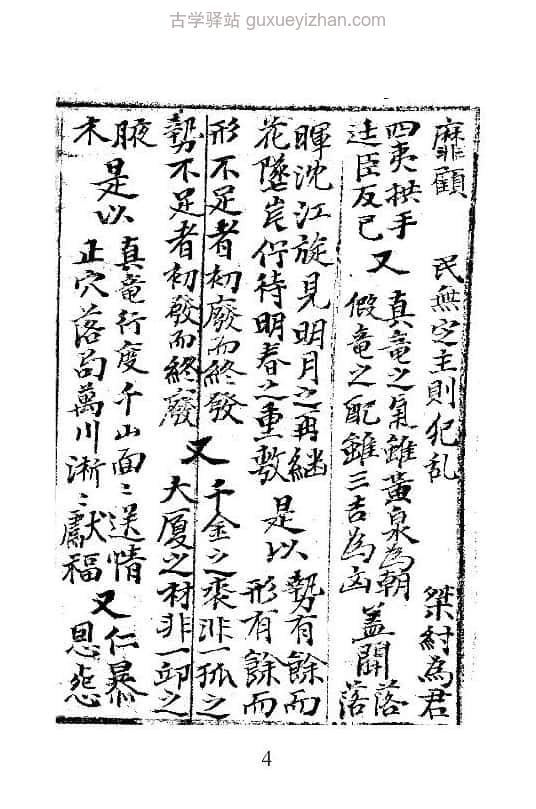 古学驿站 guxueyizhan.com
靡顧 民無定主則犯乱 桀紂為君
四夷拱手
臣友已
又
真竜之氣雖黃泉為朝
假竜之配雖三吉為凶
盖聞
落
落
暉沈江旋見明月之再繼
花墜岸佇待明春之重敷
是以
勢有餘而
形有餘而
形不足者初廢而終發
勢不足者初發而終廢
又
千金之裘非一狐之
大厦之材非一邱之
腋
木
是以
真竜行度千山面〻送情
正穴落局萬川淅〻獻福
又
仁暴
恩怨
4